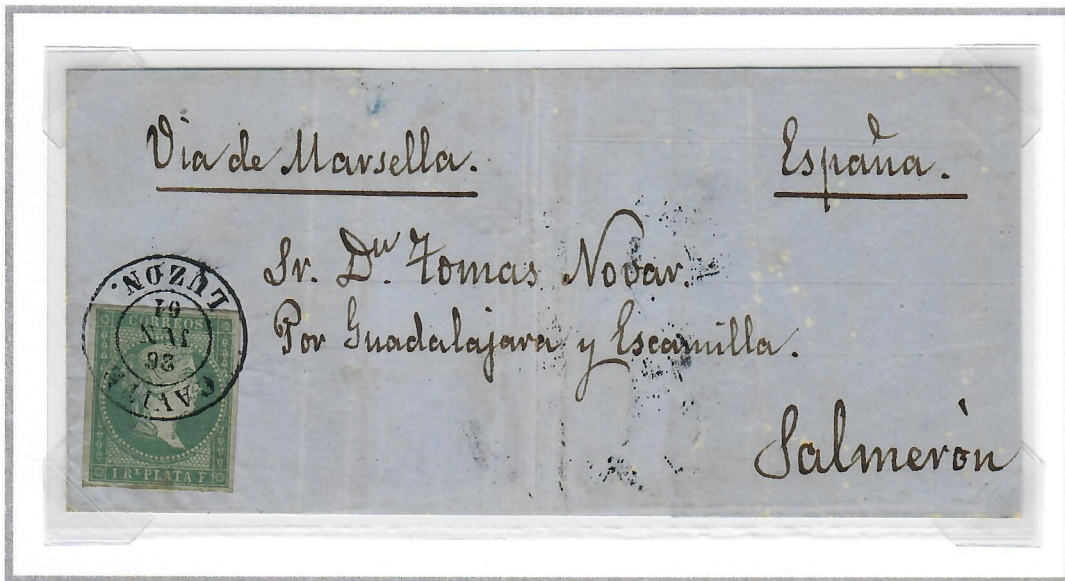 Via de Marsella.
España.
Sr. Dn. Tomas Novar.
Por Guadalajara y Escamilla.
Salmerón
LUZON.
61
JUN
26
CORREOS
1 Rl. PLATA F